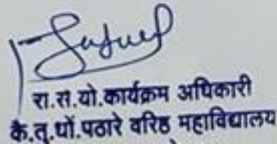 रा.से.यो.कार्यक्रम अधिकारी
कै.तु.धों.पठारे वरिष्ठ महाविद्यालय